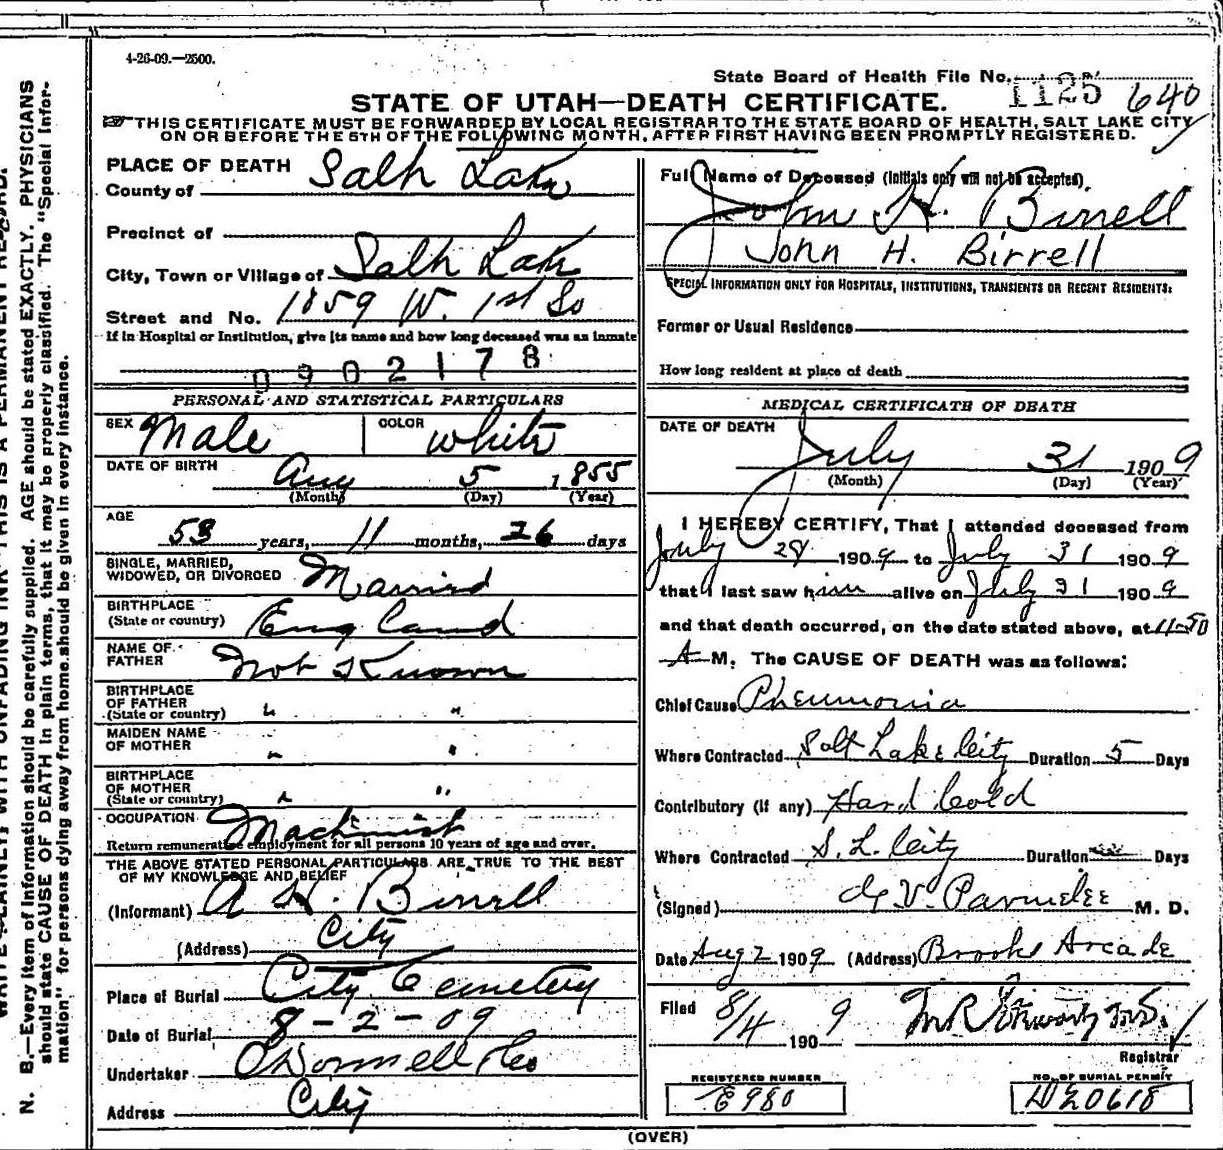 4-26-09.—2500.
State Board of Health File No. 1125 640
STATE OF UTAH—DEATH CERTIFICATE.
THIS CERTIFICATE MUST BE FORWARDED BY LOCAL REGISTRAR TO THE STATE BOARD OF HEALTH, SALT LAKE CITY
ON OR BEFORE THE 5TH OF THE FOLLOWING MONTH, AFTER FIRST HAVING BEEN PROMPTLY REGISTERED.
PLACE OF DEATH
County of Salt Lake
Precinct of
City, Town or Village of Salt Lake
Street and No. 1859 W. 1st So
If in Hospital or Institution, give its name and how long deceased was an inmate
0902178
PERSONAL AND STATISTICAL PARTICULARS
SEX Male COLOR white
DATE OF BIRTH Aug 5 1855
(Month) (Day) (Year)
AGE
53 years, 11 months, 26 days
SINGLE, MARRIED,
WIDOWED, OR DIVORCED Married
BIRTHPLACE
(State or country) England
NAME OF
FATHER Not Known
BIRTHPLACE
OF FATHER
(State or country) " "
MAIDEN NAME
OF MOTHER " "
BIRTHPLACE
OF MOTHER
(State or country) " "
OCCUPATION Machinist
Return remunerative employment for all persons 10 years of age and over.
THE ABOVE STATED PERSONAL PARTICULARS ARE TRUE TO THE BEST
OF MY KNOWLEDGE AND BELIEF
(Informant) A H. Birrell
(Address) City
Place of Burial City Cemetery
Date of Burial 8-2-09
Undertaker O'Donnell & Co
Address City
Full Name of Deceased (Initials only will not be accepted).
John H. Birrell
John H. Birrell
SPECIAL INFORMATION ONLY FOR HOSPITALS, INSTITUTIONS, TRANSIENTS OR RECENT RESIDENTS:
Former or Usual Residence
How long resident at place of death
MEDICAL CERTIFICATE OF DEATH
DATE OF DEATH
July 31 1909
(Month) (Day) (Year)
I HEREBY CERTIFY, That I attended deceased from
July 28 1909 to July 31 1909
that I last saw him alive on July 31 1909
and that death occurred, on the date stated above, at 11-50
A M. The CAUSE OF DEATH was as follows:
Chief Cause Pneumonia
Where Contracted Salt Lake City Duration 5 Days
Contributory (if any) Hard Cold
Where Contracted S. L. City Duration Days
(Signed) G V. Parmelee M. D.
Date Aug 2 1909 (Address) Brooks Arcade
Filed 8/4 1909
Registrar
REGISTERED NUMBER
E980
NO. OF BURIAL PERMIT
D20618
(OVER)
N. B.—Every item of information should be carefully supplied. AGE should be stated EXACTLY. PHYSICIANS
should state CAUSE OF DEATH in plain terms, that it may be properly classified. The "Special Infor-
mation" for persons dying away from home should be given in every instance.